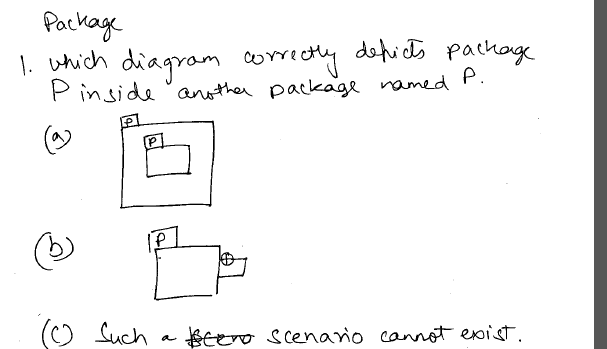 Package
1. which diagram correctly depicts package
P inside another package named P.
(a)
P
P
(b)
P
(c) Such a scenario cannot exist.